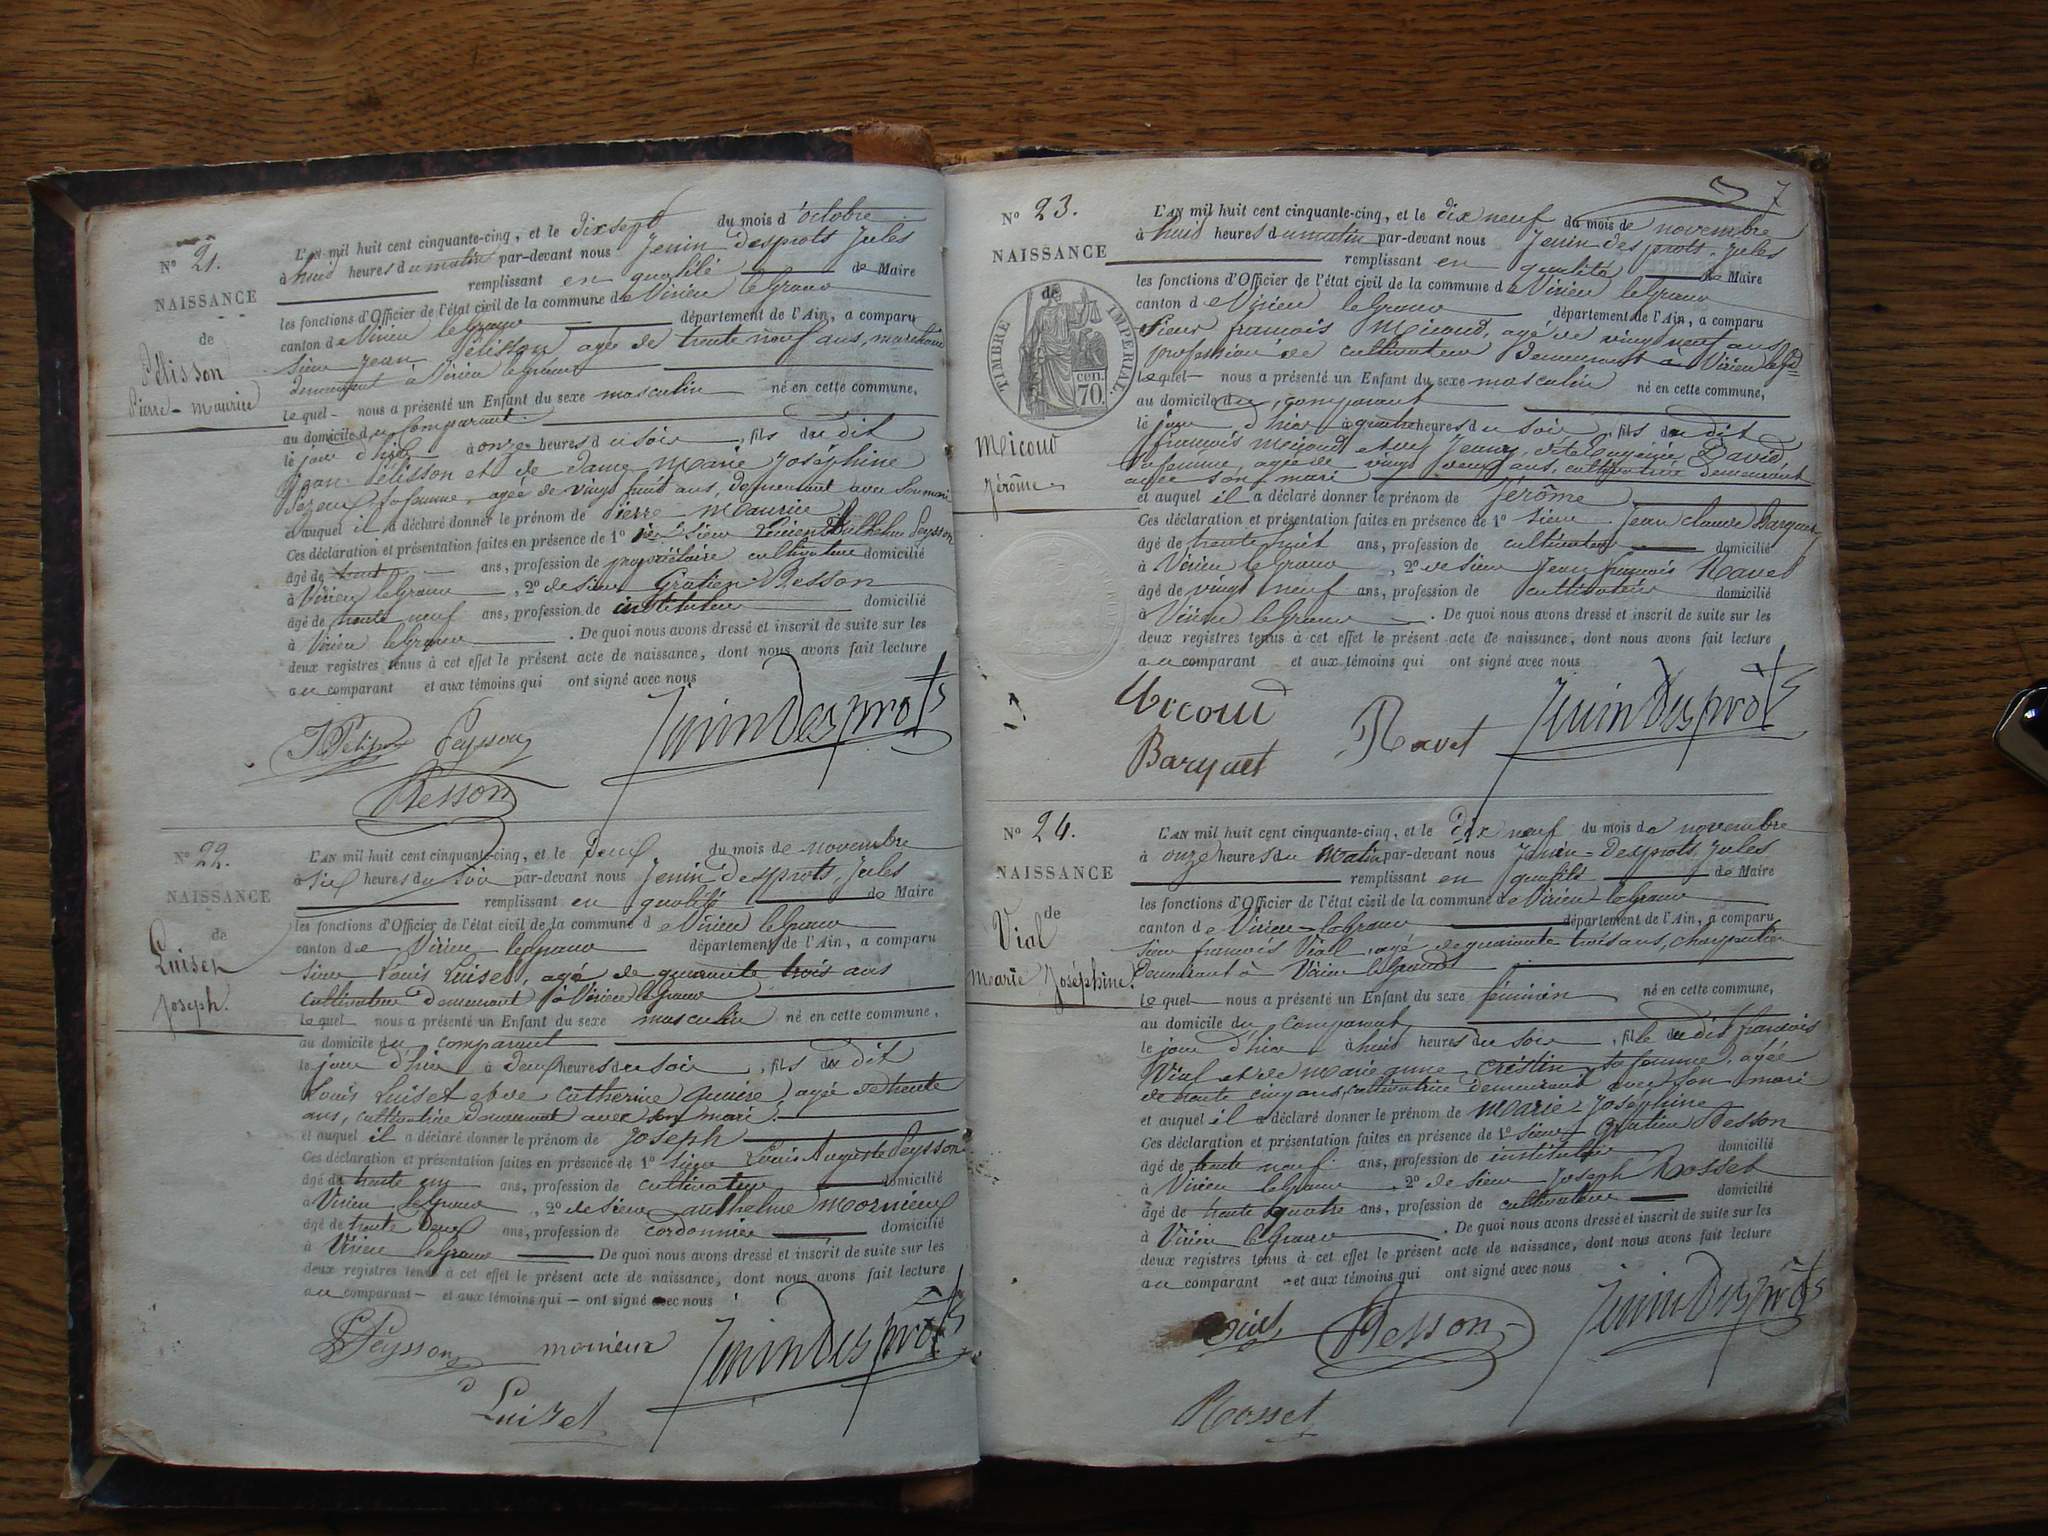 N° 21.
NAISSANCE
de
Pélisson
Pierre-Maurice
L'AN mil huit cent cinquante-cinq, et le dix sept du mois d'octobre
à huit heures du matin par-devant nous Jenin desprots Jules
remplissant en qualité de Maire
les fonctions d'Officier de l'état civil de la commune de Virieu le Grand
canton de Virieu le Grand département de l'Ain, a comparu
sieur Jean Pélisson agée de trente neuf ans,
demeurant à Virieu le Grand
Lequel nous a présenté un Enfant du sexe masculin né en cette commune,
au domicile du comparant
le jour d'hier à onze heures du soir, fils du dit
Jean Pélisson et de dame Marie Joséphine
sa femme, agée de vingt huit ans, demeurant avec son mari
et auquel il a déclaré donner le prénom de Pierre Maurice
Ces déclaration et présentation faites en présence de 1° sieur Peysson
âgé de ans, profession de propriétaire cultivateur domicilié
à Virieu le Grand, 2° de sieur Gratien Besson
âgé de trente neuf ans, profession de instituteur domicilié
à Virieu le Grand. De quoi nous avons dressé et inscrit de suite sur les
deux registres tenus à cet effet le présent acte de naissance, dont nous avons fait lecture
au comparant et aux témoins qui ont signé avec nous
JPelisson Peysson Jenin Desprots
Besson
N° 22.
NAISSANCE
de
Luiset
Joseph.
L'AN mil huit cent cinquante-cinq, et le deux du mois de novembre
à six heures du soir par-devant nous Jenin desprots, Jules
remplissant en qualité de Maire
les fonctions d'Officier de l'état civil de la commune de Virieu le Grand
canton de Virieu le Grand département de l'Ain, a comparu
sieur Louis Luiset, agé de quarante trois ans
cultivateur demeurant à Virieu le Grand
Lequel nous a présenté un Enfant du sexe masculin né en cette commune,
au domicile du comparant
le jour d'hier à deux heures du soir, fils du dit
Louis Luiset et de Catherine agée de trente
ans, cultivatrice demeurant avec son mari.
et auquel il a déclaré donner le prénom de Joseph
Ces déclaration et présentation faites en présence de 1° sieur Louis Auguste Peysson
âgé de trente ans, profession de cultivateur domicilié
à Virieu le Grand, 2° de sieur Anthelme Mornieux
âgé de trente deux ans, profession de cordonnier domicilié
à Virieu le Grand De quoi nous avons dressé et inscrit de suite sur les
deux registres tenus à cet effet le présent acte de naissance, dont nous avons fait lecture
au comparant et aux témoins qui ont signé avec nous
Peysson mornieux Jenin Desprots
Luizet
7
N° 23.
NAISSANCE
de
TIMBRE IMPERIAL.
70 cen.
Micoud
Jérôme
L'AN mil huit cent cinquante-cinq, et le dix neuf du mois de novembre
à huit heures du matin par-devant nous Jenin desprots, Jules
remplissant en qualité de Maire
les fonctions d'Officier de l'état civil de la commune de Virieu le Grand
canton de Virieu le Grand département de l'Ain, a comparu
Sieur françois Micoud, agé de vingt neuf ans
profession de cultivateur demeurant à Virieu le Gd
Lequel nous a présenté un Enfant du sexe masculin né en cette commune,
au domicile du comparant
le jour d'hier à quatre heures du soir, fils du dit
françois Micoud et de Jeanne, Eugénie David
sa femme, agée de vingt ans, cultivatrice demeurant
avec son mari
et auquel il a déclaré donner le prénom de Jérôme
Ces déclaration et présentation faites en présence de 1° sieur Jean claude Barquet
âgé de trente huit ans, profession de cultivateur domicilié
à Virieu le Grand, 2° de sieur Jean françois Ravet
âgé de vingt neuf ans, profession de cultivateur domicilié
à Virieu le Grand. De quoi nous avons dressé et inscrit de suite sur les
deux registres tenus à cet effet le présent acte de naissance, dont nous avons fait lecture
au comparant et aux témoins qui ont signé avec nous
Micoud Ravet Jenin Desprots
Barquet
N° 24.
NAISSANCE
de
Vial
Marie Joséphine.
L'AN mil huit cent cinquante-cinq, et le dix neuf du mois de novembre
à onze heures du matin par-devant nous Jenin-Desprots, Jules
remplissant en qualité de Maire
les fonctions d'Officier de l'état civil de la commune de Virieu-le Grand
canton de Virieu-le Grand département de l'Ain, a comparu
Sieur françois Vial, agé de quarante trois ans, charpentier
Demeurant à Virieu le Grand
Lequel nous a présenté un Enfant du sexe féminin né en cette commune,
au domicile du comparant
le jour d'hier à huit heures du soir, fille du dit françois
Vial et de Marie anne Crétin, sa femme, agée
de trente cinq ans, cultivatrice demeurant avec son mari
et auquel il a déclaré donner le prénom de Marie-Joséphine
Ces déclaration et présentation faites en présence de 1° sieur Gratien Besson
âgé de trente neuf ans, profession de instituteur domicilié
à Virieu le Grand, 2° de sieur Joseph Rosset
âgé de trente quatre ans, profession de cultivateur domicilié
à Virieu le Grand. De quoi nous avons dressé et inscrit de suite sur les
deux registres tenus à cet effet le présent acte de naissance, dont nous avons fait lecture
au comparant et aux témoins qui ont signé avec nous
Vial Besson Jenin Desprots
Rosset